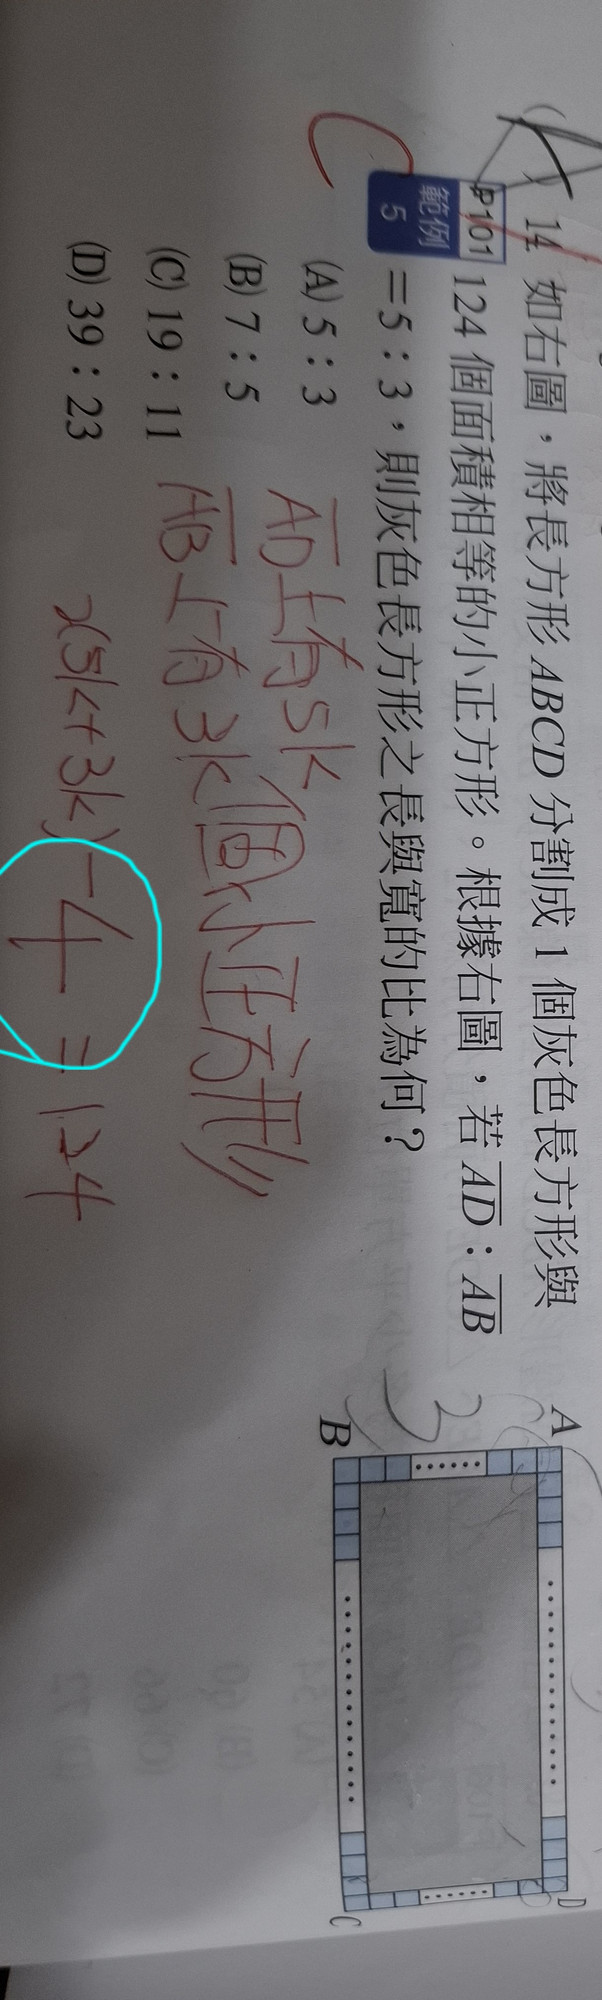 14. 如右圖，將長方形 ABCD 分割成 1 個灰色長方形與
P101
範例
5
124 個面積相等的小正方形。根據右圖，若 AD : AB
＝5：3，則灰色長方形之長與寬的比為何？
(A) 5：3
(B) 7：5
(C) 19：11
(D) 39：23
C
AD上有5k
AB上有3k個小正方形
2(5k+3k)-4=124
A
B
C
D